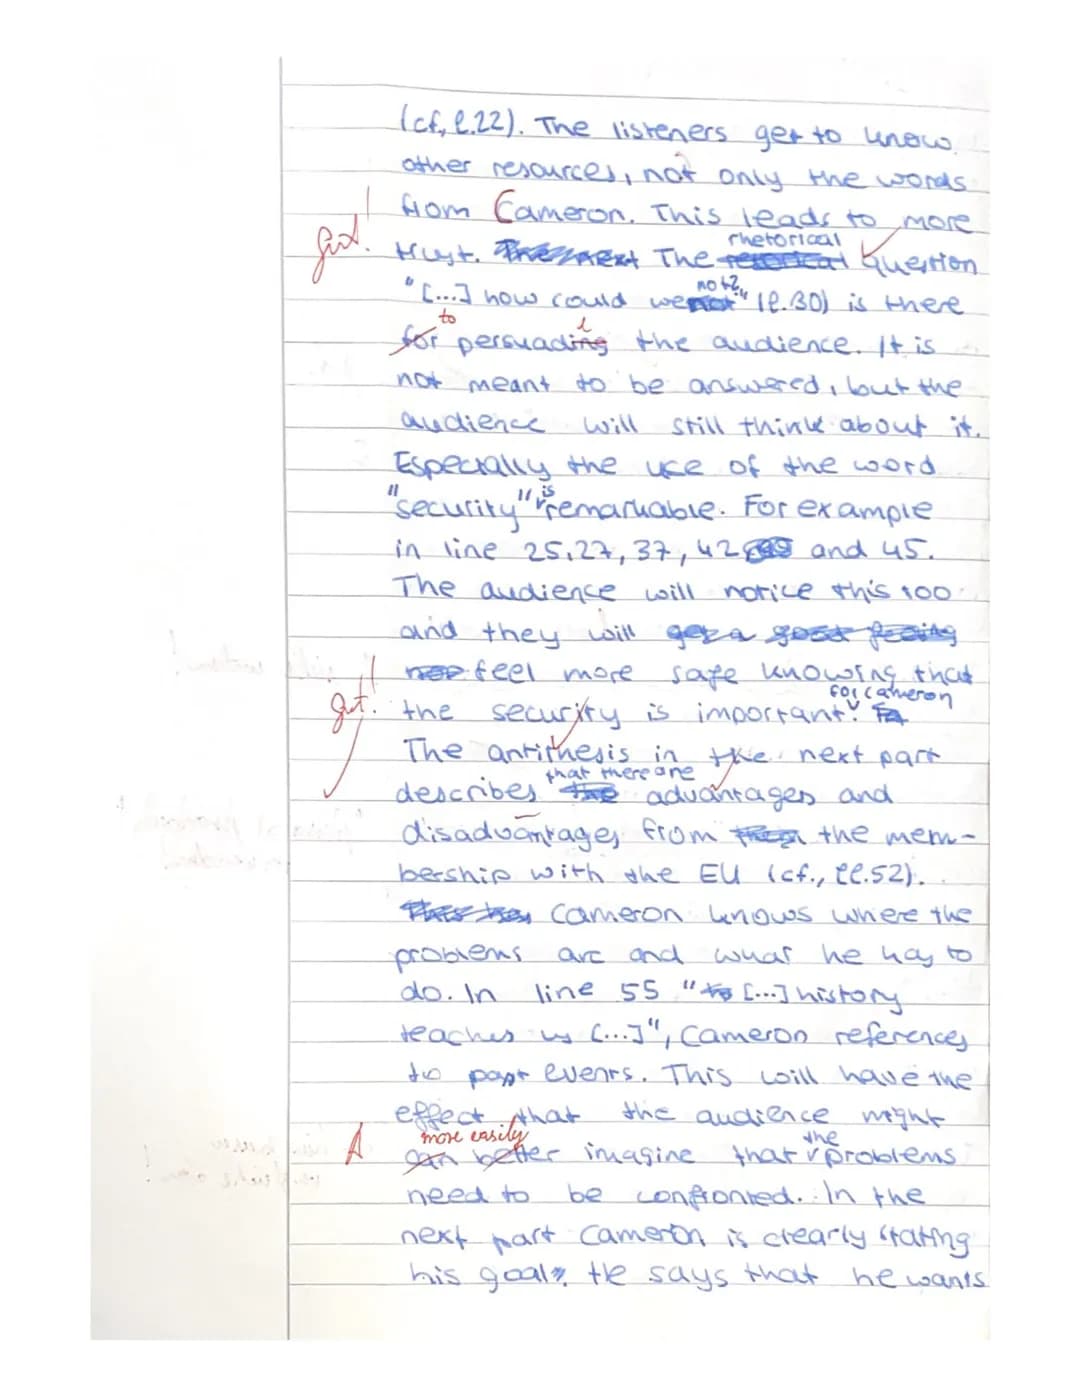 (cf, l.22). The listeners get to know
other resources, not only the words
from Cameron. This leads to more
gut!
rhetorical
trust. The next The retorical question
not?
"[...] how could we not" (l.30) is there
to e
for persuading the audience. It is
not meant to be answered, but the
audience will still think about it.
Especially the use of the word
is
"security" remarkable. For example
in line 25,27,37,42 and 45.
The audience will notice this too
and they will get a good feeling
feel more safe knowing that
gut!
for Cameron
the security is important.
The antithesis in the next part
that there are
describes the advantages and
disadvantages from the mem-
bership with the EU (cf., ll.52).
This has Cameron knows where the
problems are and what he has to
do. In line 55 "to [...] history
teaches us [...]", Cameron references
to past events. This will have the
effect that the audience might
A
more easily the
can better imagine that problems
need to be confronted. In the
next part Cameron is clearly stating
his goals. He says that he wants